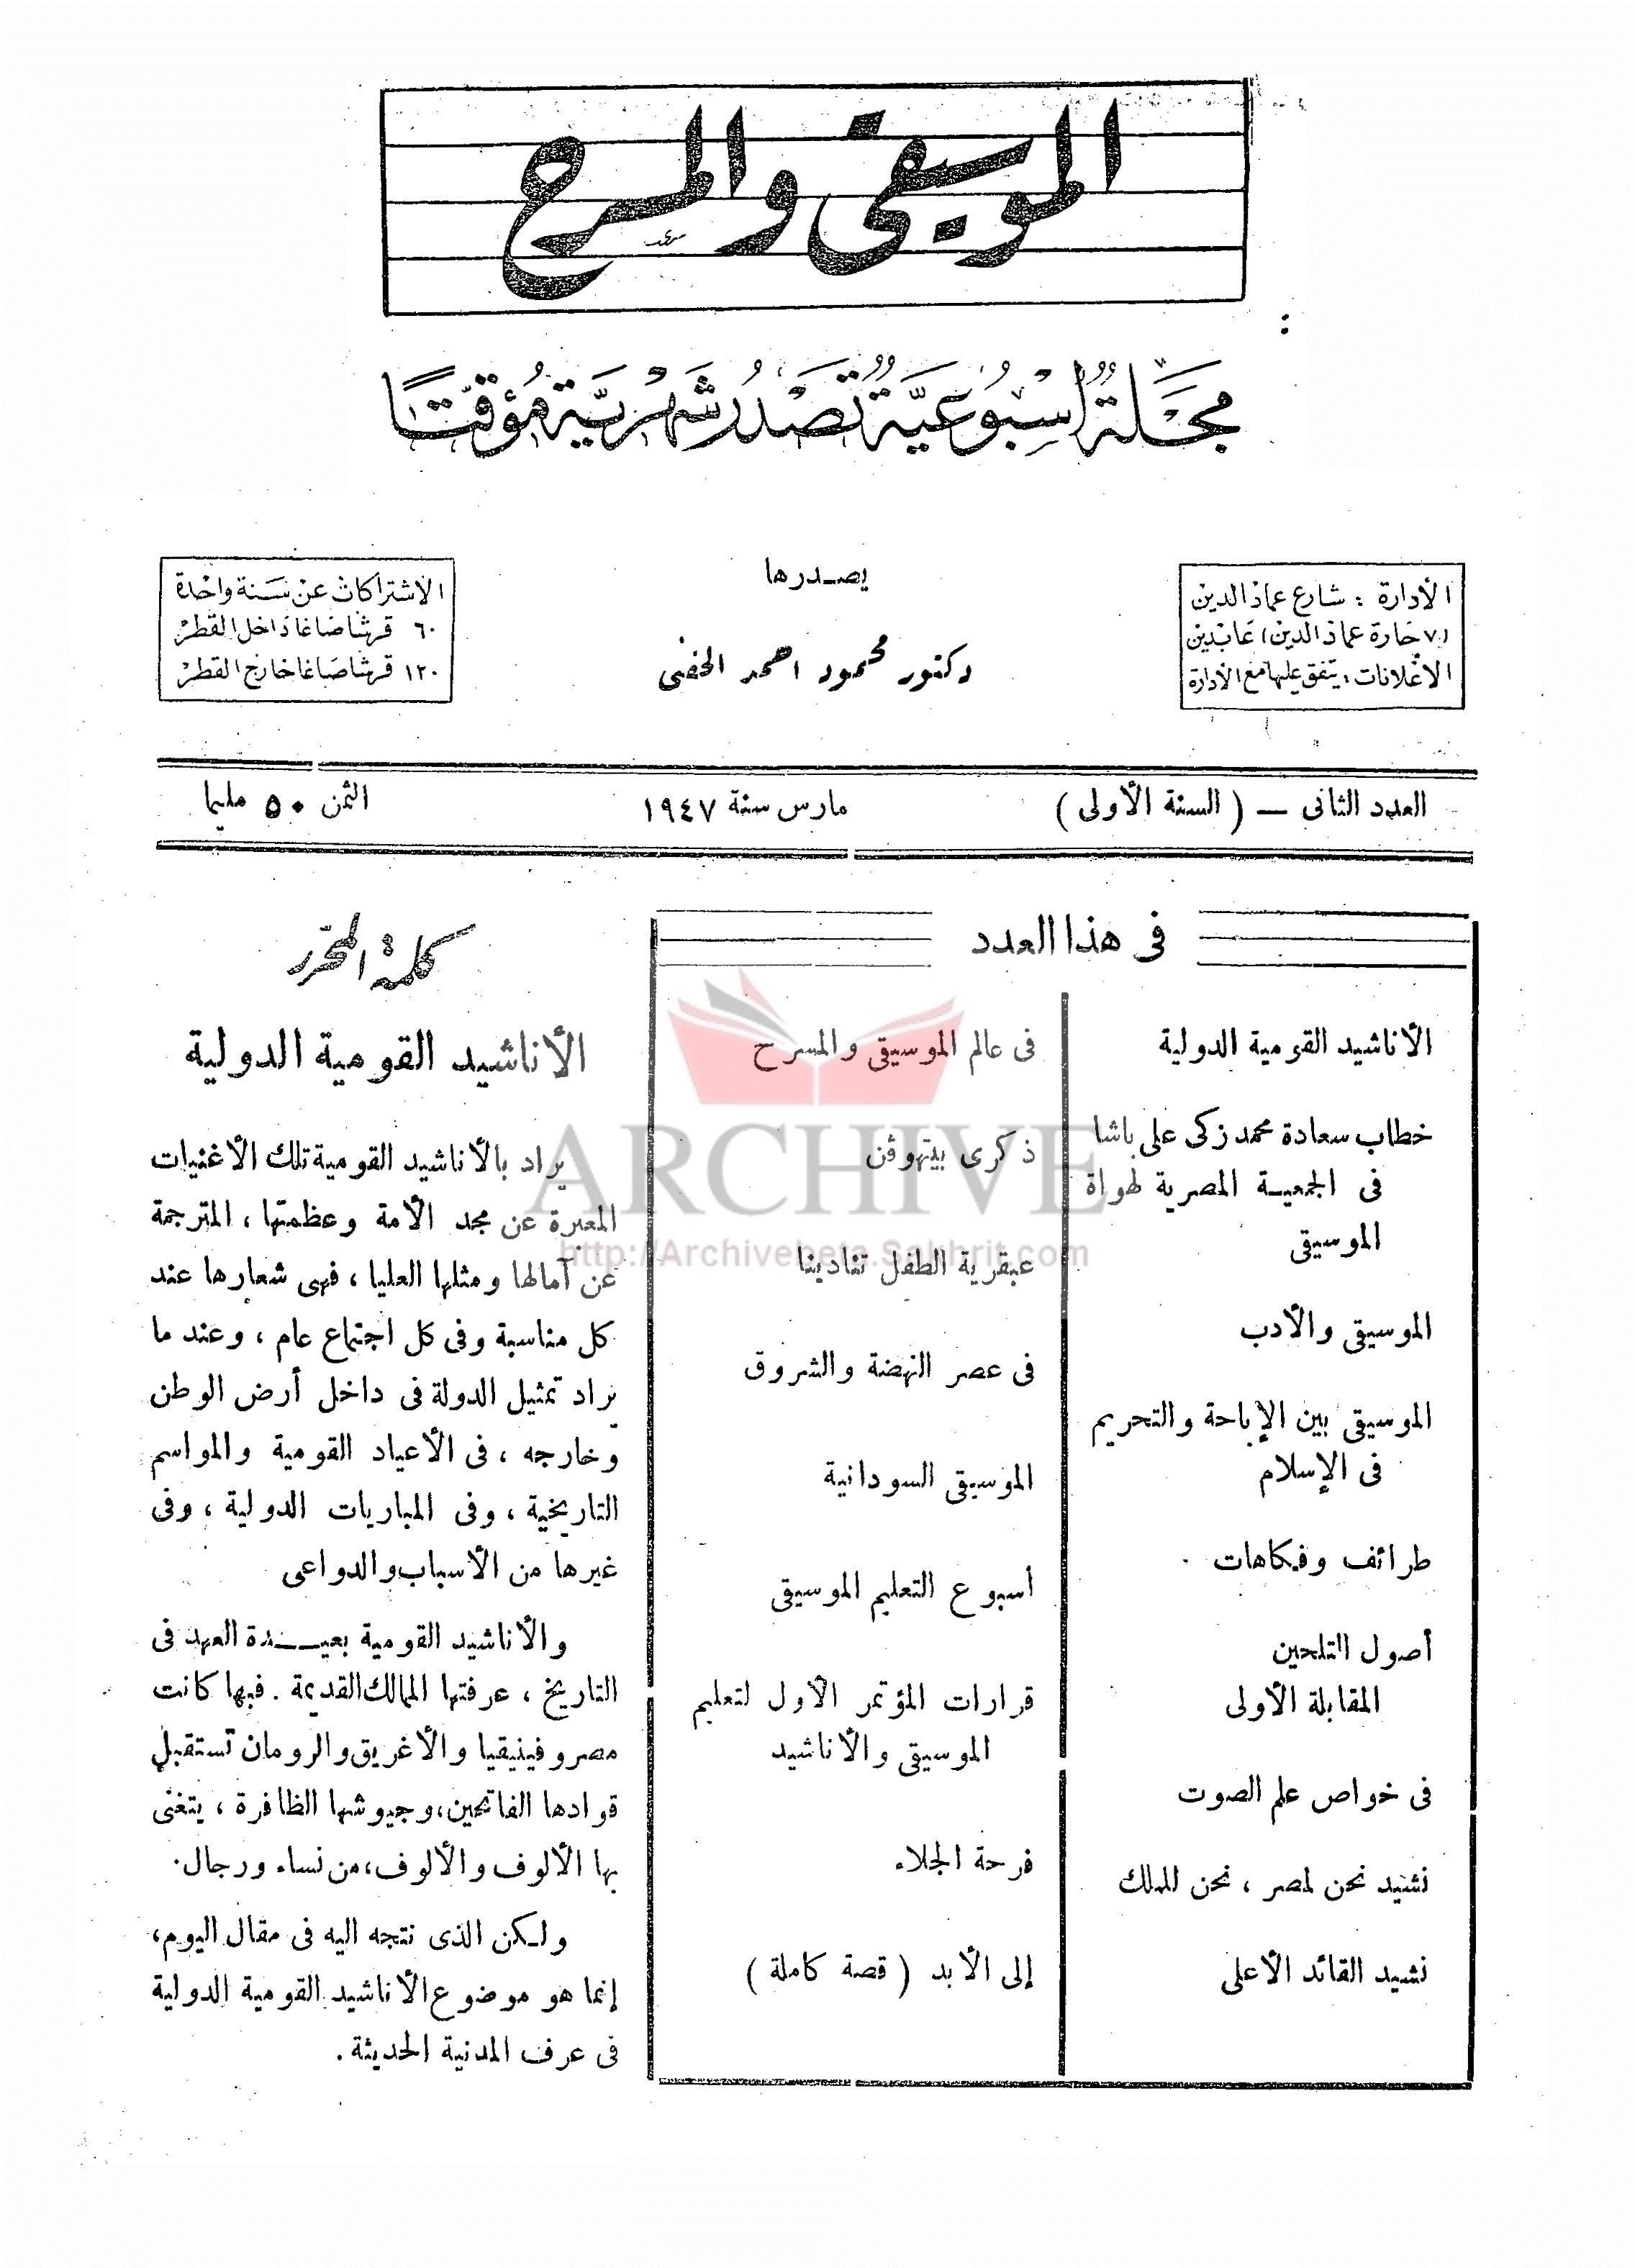 الموسيقى والمسرح
مجلة أسبوعية تصدر شهرية مؤقتا
الأدارة : شارع عماد الدين
(٧ حارة عماد الدين) عابدين
الاعلانات : يتفق عليها مع الأدارة
يصدرها
دكتور محمود احمد الحفنى
الاشتراكات عن سنة واحدة
٦٠ قرشا صاغا داخل القطر
١٢٠ قرشا صاغا خارج القطر
العدد الثانى — ( السنة الأولى )
مارس سنة ١٩٤٧
الثمن ٥٠ مليما
فى هذا العدد
الأناشيد القومية الدولية
خطاب سعادة محمد زكى على باشا
فى الجمعية المصرية لهواة
الموسيقى
الموسيقى والأدب
الموسيقى بين الإباحة والتحريم
فى الإسلام
طرائف وفكاهات
أصول التلحين
المقابلة الأولى
فى خواص علم الصوت
نشيد نحن لمصر ، نحن للملك
نشيد القائد الأعلى
فى عالم الموسيقى والمسرح
ذكرى بيتهوفن
عبقرية الطفل تنادينا
فى عصر النهضة والشروق
الموسيقى السودانية
أسبوع التعليم الموسيقى
قرارات المؤتمر الأول لتعليم
الموسيقى والأناشيد
فرحة الجلاء
إلى الأبد ( قصة كاملة )
كلمة المحرر
الأناشيد القومية الدولية
يراد بالأناشيد القومية تلك الأغنيات
المعبرة عن مجد الأمة وعظمتها ، المترجمة
عن آمالها ومثلها العليا ، فهى شعارها عند
كل مناسبة وفى كل اجتماع عام ، وعند ما
يراد تمثيل الدولة فى داخل أرض الوطن
وخارجه ، فى الأعياد القومية والمواسم
التاريخية ، وفى المباريات الدولية ، وفى
غيرها من الأسباب والدواعى
والأناشيد القومية بعيدة العهد فى
التاريخ ، عرفتها الممالك القديمة . فبها كانت
مصر وفينيقيا والأغريق والرومان تستقبل
قوادها الفاتحين، وجيوشها الظافرة ، يتغنى
بها الألوف والألوف، من نساء ورجال.
ولكن الذى نتجه اليه فى مقال اليوم،
إنما هو موضوع الأناشيد القومية الدولية
فى عرف المدنية الحديثة .
ARCHIVE
http://Archivebeta.Sakhrit.com